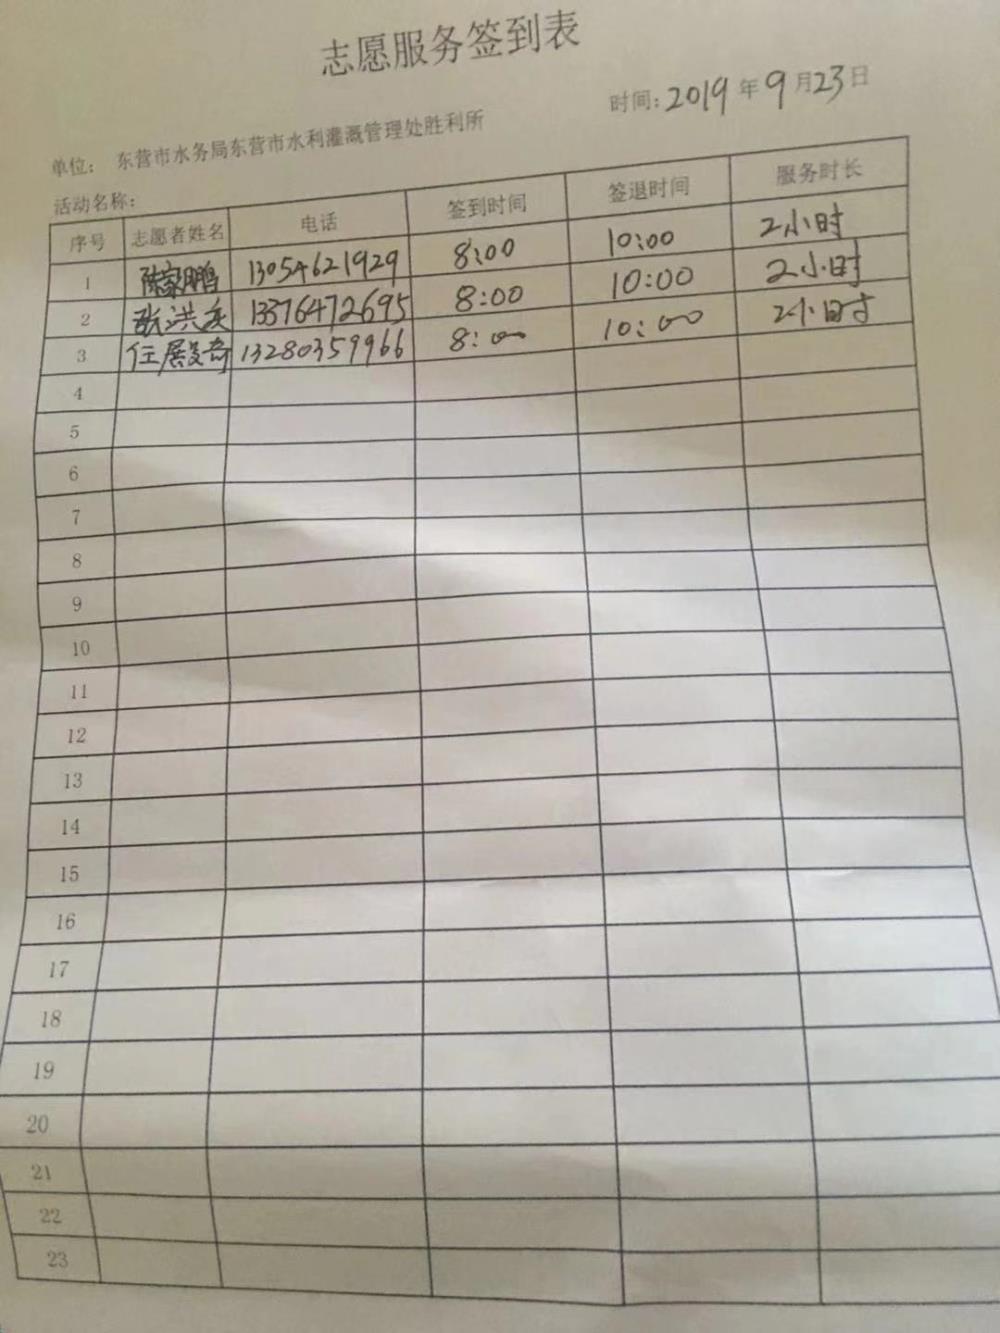 志愿服务签到表
时间: 2019 年 9 月 23 日
单位: 东营市水务局东营市水利灌溉管理处胜利所
活动名称:
序号 志愿者姓名 电话 签到时间 签退时间 服务时长
1 陈家鹏 13054621929 8:00 10:00 2小时
2 张洪 13376472695 8:00 10:00 2小时
3 任展 13280359966 8:00 10:00 2小时
4
5
6
7
8
9
10
11
12
13
14
15
16
17
18
19
20
21
22
23